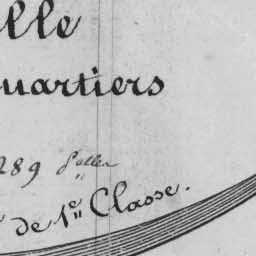 lle
uartiers
289 P.elles
de 1re Classe.